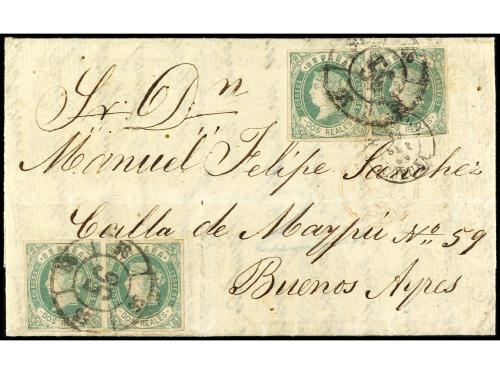 ESPAÑA ESPAÑA
CORREOS CORREOS
DOS REALES DOS REALES
Sr. Dn
Manuel Felipe Sanchez
Calla de Maypú No. 59
Buenos Ayres
ESPAÑA ESPAÑA
CORREOS CORREOS
DOS REALES DOS REALES